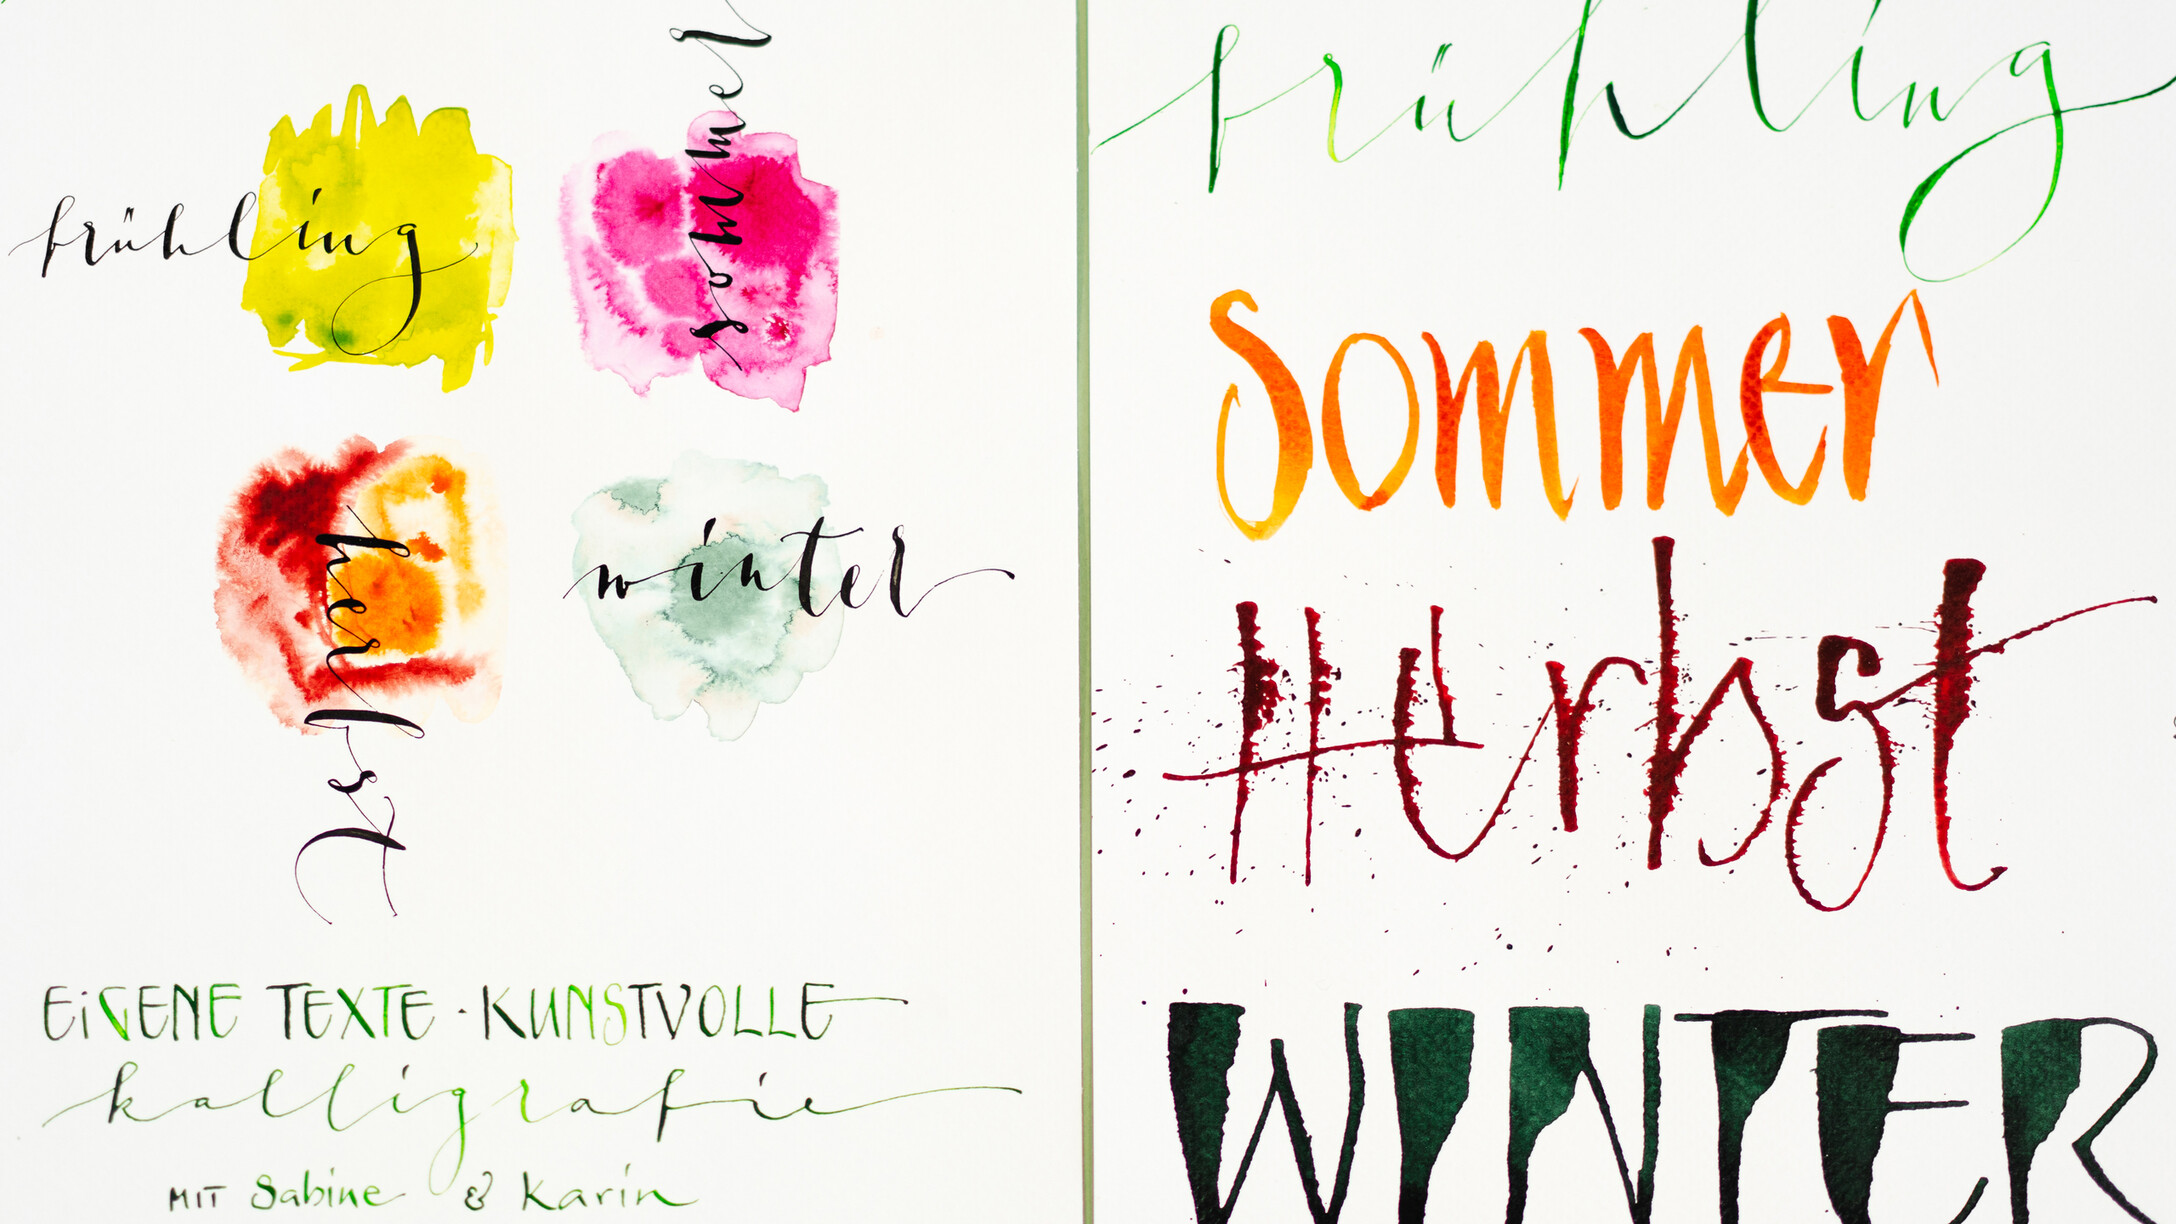 frühling
sommer
herbst
winter
EiGENE TEXTE · KUNSTVOLLE
kalligrafie
MIT Sabine & Karin
frühling
Sommer
Herbst
WINTER